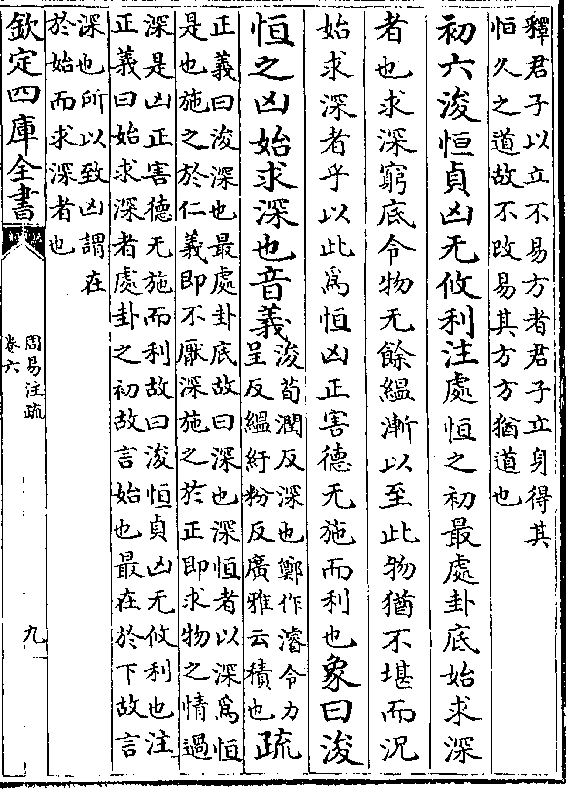 釋君子以立不易方者君子立身得其
恒久之道故不改易其方方猶道也
初六浚恒貞凶无攸利注處恒之初最處卦底始求深
者也求深窮底令物无餘緼漸以至此物猶不堪而況
始求深者乎以此為恒凶正害德无施而利也象曰浚
恒之凶始求深也音義浚荀潤反深也鄭作濬令力
呈反緼紆粉反廣雅云積也疏
正義曰浚深也最處卦底故曰深也深恒者以深為恒
是也施之於仁義即不厭深施之於正即求物之情過
深是凶正害德无施而利故曰浚恒貞凶无攸利也注
正義曰始求深者處卦之初故言始也最在於下故言
深也所以致凶謂在
於始而求深者也
欽定四庫全書
周易注疏
卷六
九